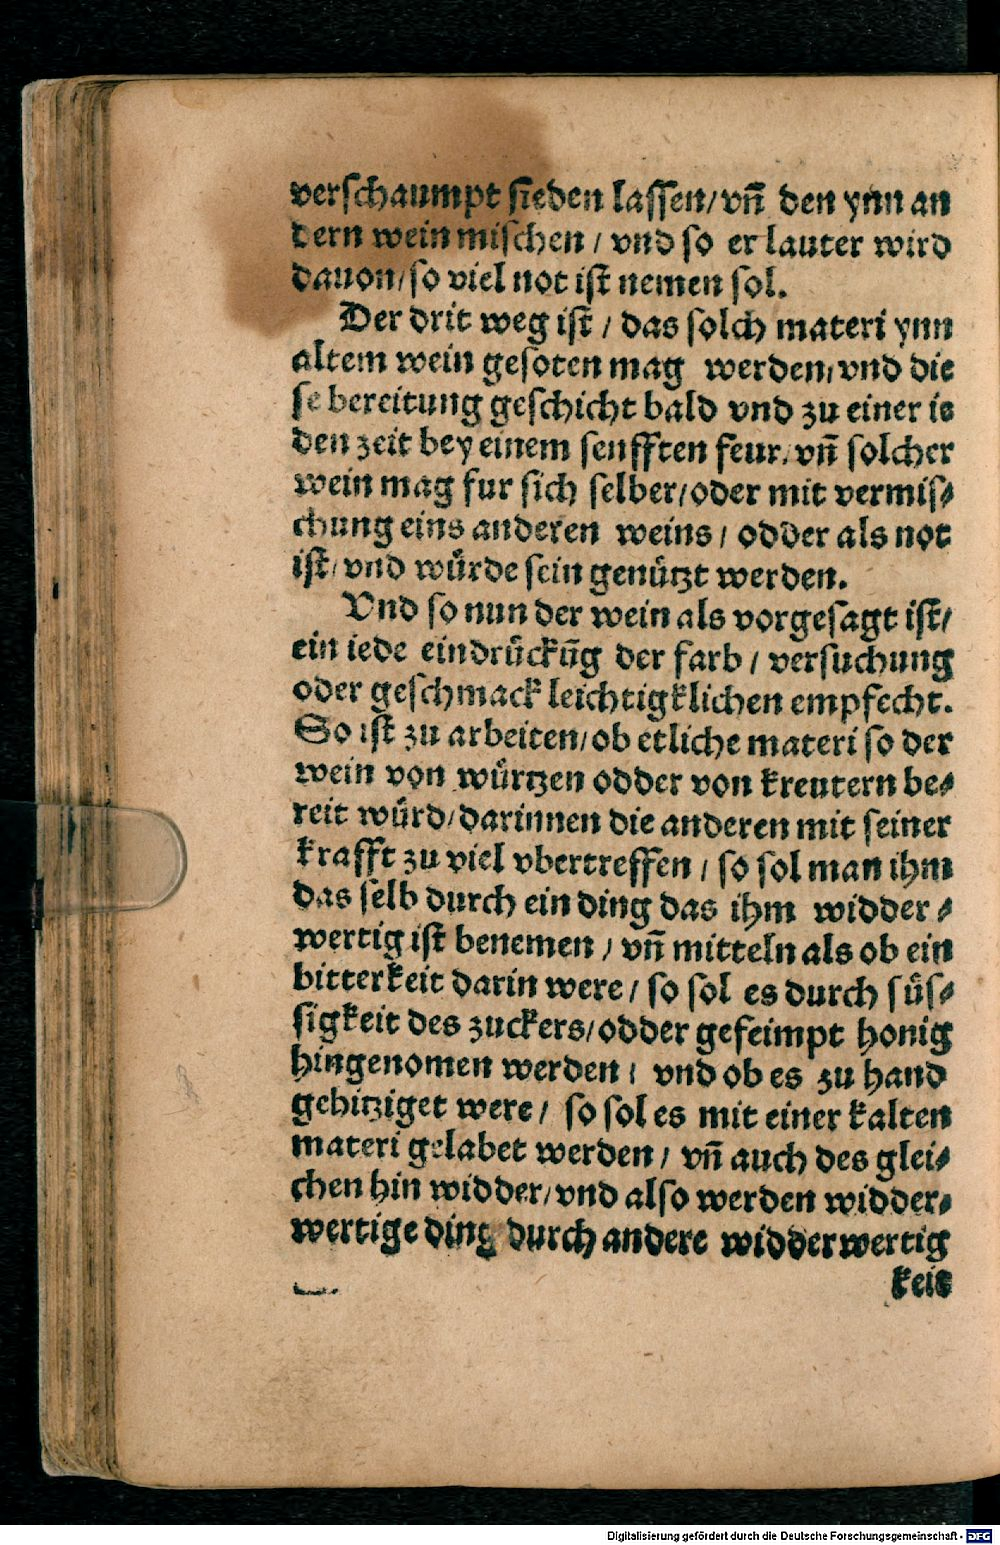 verschaumpt sieden lassen/ vñ den ynn an
dern wein mischen / vnd so er lauter wird
dauon/ so viel not ist nemen sol.
Der drit weg ist / das solch materi ynn
altem wein gesoten mag werden/ vnd die
se bereitung geschicht bald vnd zu einer ie
den zeit bey einem senfften feur/ vñ solcher
wein mag fur sich selber/ oder mit vermis⸗
chung eins anderen weins / odder als not
ist/ vnd würde sein genützt werden.
Vnd so nun der wein als vorgesagt ist/
ein iede eindrückũg der farb / versuchung
oder geschmack leichtigklichen empfecht.
So ist zu arbeiten/ ob etliche materi so der
wein von würtzen odder von kreutern be⸗
reit würd/ darinnen die anderen mit seiner
krafft zu viel vbertreffen / so sol man ihm
das selb durch ein ding das ihm widder ⸗
wertig ist benemen / vñ mitteln als ob ein
bitterkeit darin were / so sol es durch süs⸗
sigkeit des zuckers/ odder gefeimpt honig
hingenomen werden / vnd ob es zu hand
gehitziget were / so sol es mit einer kalten
materi gelabet werden / vñ auch des glei⸗
chen hin widder/ vnd also werden widder⸗
wertige ding durch andere widderwertig
keit
Digitalisierung gefördert durch die Deutsche Forschungsgemeinschaft - DFG